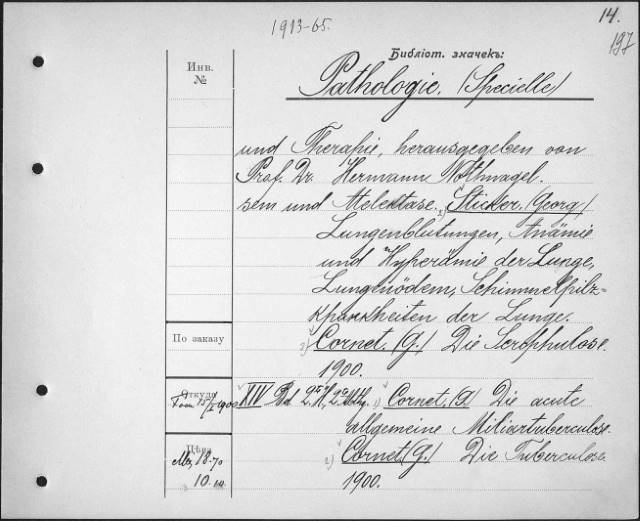 1913-65.
14.
197
Библіот. значекъ:
Инв.
№
Pathologie. (Specielle)
und Therapie, herausgegeben von
Prof. Dr. Hermann Nothnagel.
sem und Atelektase. 2) Sticker. (Georg)
Lungenblutungen, Anämie
und Hyperämie der Lunge,
Lungenödem, Schimmelpilz-
krankheiten der Lunge.
По заказу
3) Cornet. (G.) Die Scrophulose.
1900.
Откуда
XIV Bd 2. H, 2te Abth. 1) Cornet. (G) Die acute
allgemeine Miliartuberculose.
Цѣна
18.70
2) Cornet. (G.) Die Tuberculose
10
1900.